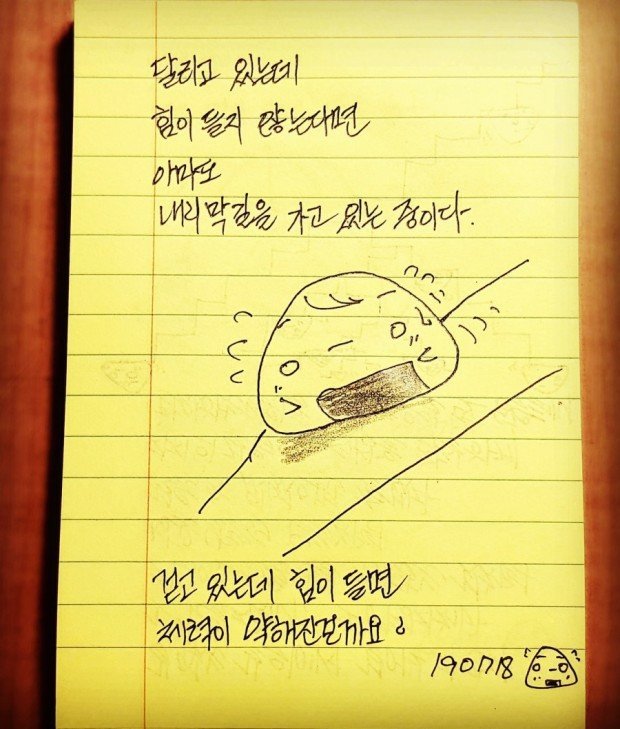 달리고 있는데
힘이 들지 않는다면
아마도
내리막길을 가고 있는 중이다.
걷고 있는데 힘이 들면
체력이 약해진걸까요?
190718